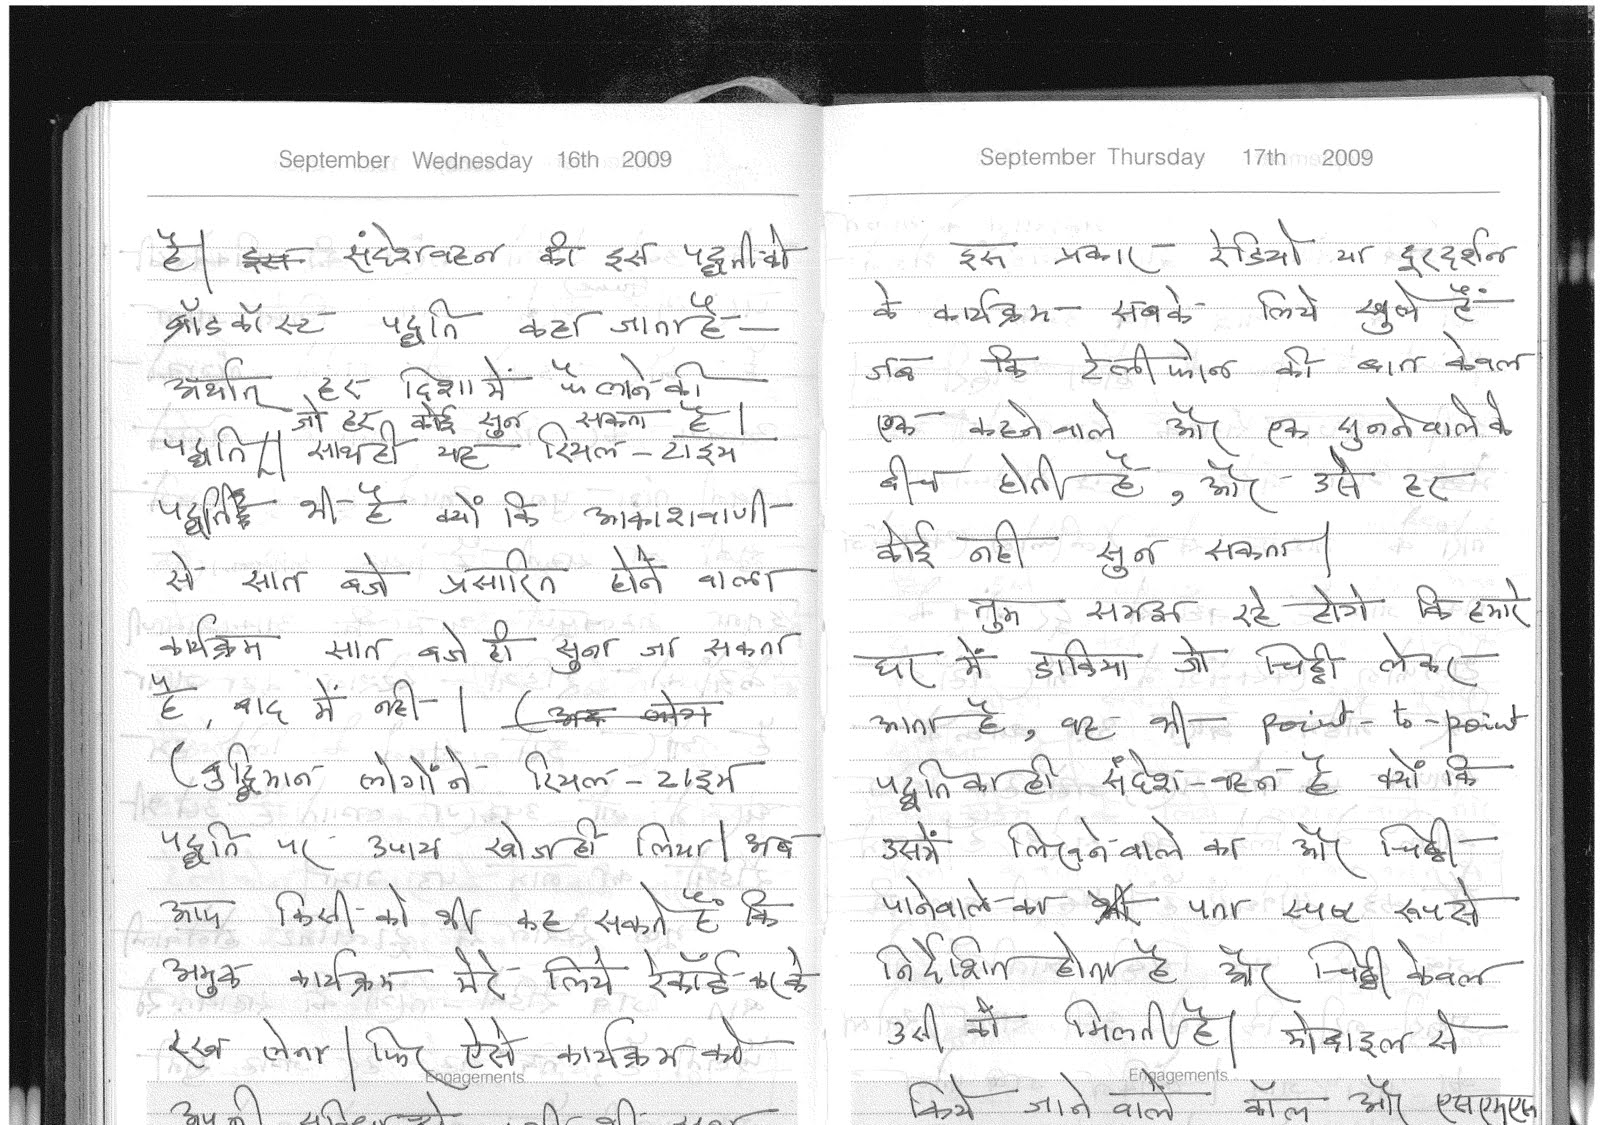 September Wednesday 16th 2009
है। इस संदेशवहन की इस पद्धतीको
ब्रॉडकॉस्ट पद्धति कहा जाता है —
अर्थात् हर दिशा में फैलाने की
जो हर कोई सुन सकता है।
पद्धति। साथही यह रियल - टाइम
पद्धति भी है क्यों कि आकाशवाणी
से सात बजे प्रसारित होने वाला
कार्यक्रम सात बजे ही सुना जा सकता
है, बाद में नही। (
(बुद्धिमान लोगोंने रियल - टाइम
पद्धति पर उपाय खोज ही लिया। अब
आप किसी को भी कह सकते हैं कि
अमुक कार्यक्रम मेरे लिये रेकॉर्ड करके
रख लेना। फिर ऐसे कार्यक्रम को
Engagements
अपनी
September Thursday 17th 2009
इस प्रकार रेडियो या दूरदर्शन
के कार्यक्रम सबके लिये खुले हैं
जब कि टेलीफोन की बात केवल
एक कहनेवाले और एक सुननेवाले के
बीच होती है, और उसे हर
कोई नही सुन सकता।
तुम समझ रहे होगे कि हमारे
घर में डाकिया जो चिठ्ठी लेकर
आता है, वह भी point-to-point
पद्धति का ही संदेश-वहन है क्यों कि
उसमें लिखनेवाले का और चिठ्ठी
पानेवाले का पता स्पष्ट रूपसे
निर्देशित होता है और चिठ्ठी केवल
उसी को मिलती है। मोबाइल से
Engagements
किये जाने वाले कॉल और एसएमएस